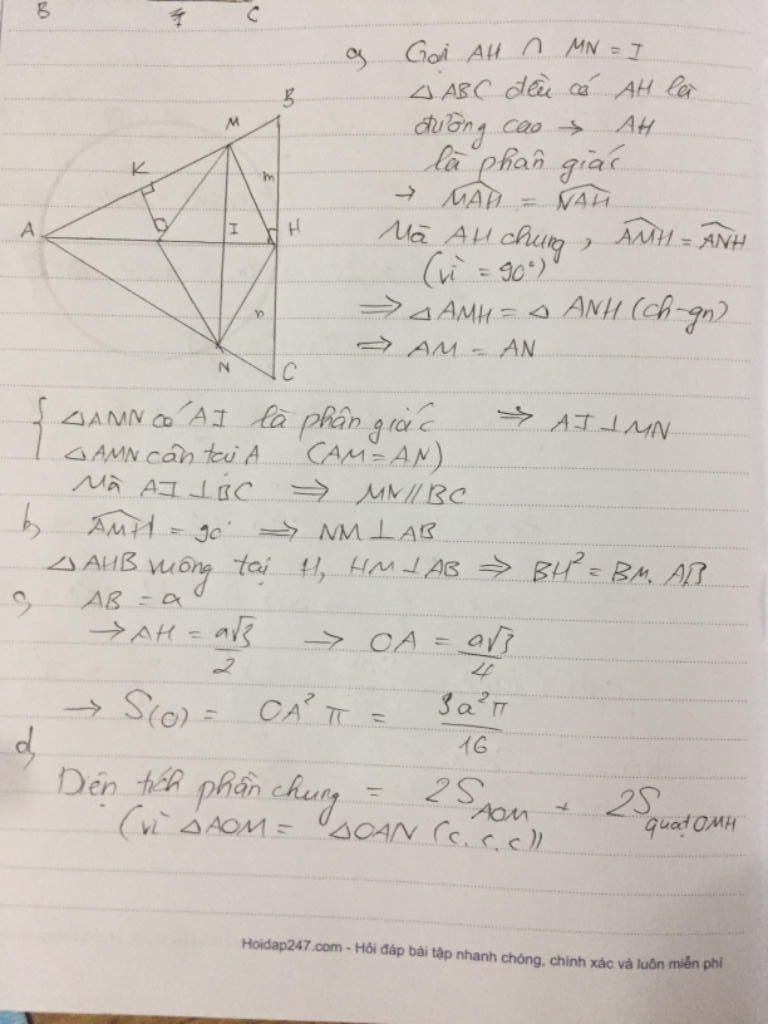 B C
a, Gọi AH ∩ MN = I
△ABC đều có AH là
đường cao → AH
là phân giác
→ \widehat{MAH} = \widehat{NAH}
Mà AH chung, \widehat{AMH} = \widehat{ANH}
(vì = 90°)
⇒ △AMH = △ANH (ch-gn)
⇒ AM = AN
B
M
K
m
A
O
I
H
n
N
C
{ △AMN có AI là phân giác ⇒ AI ⊥ MN
△AMN cân tại A (AM = AN)
Mà AI ⊥ BC ⇒ MN // BC
b, \widehat{AMH} = 90° ⇒ NM ⊥ AB
△AHB vuông tại H, HM ⊥ AB ⇒ BH² = BM. AB
c, AB = a
→ AH = a√3/2 → OA = a√3/4
→ S(O) = OA² π = 3a²π/16
d,
Diện tích phần chung = 2S_{AOM} + 2S_{quạt OMH}
(vì △AOM = △OAN (c.c.c))
Hoidap247.com - Hỏi đáp bài tập nhanh chóng, chính xác và luôn miễn phí